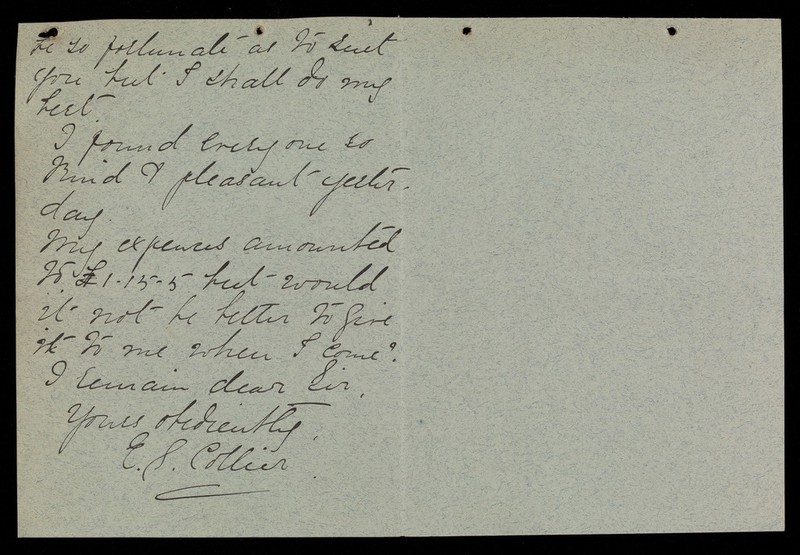 be so fortunate as to suit
you but I shall do my
best.
I found every one so
kind & pleasant yester-
day.
My expenses amounted
to £1-15-5 but would
it not be better to give
it to me when I come?
I remain dear Sir,
Yours obediently,
E. S. Collier.